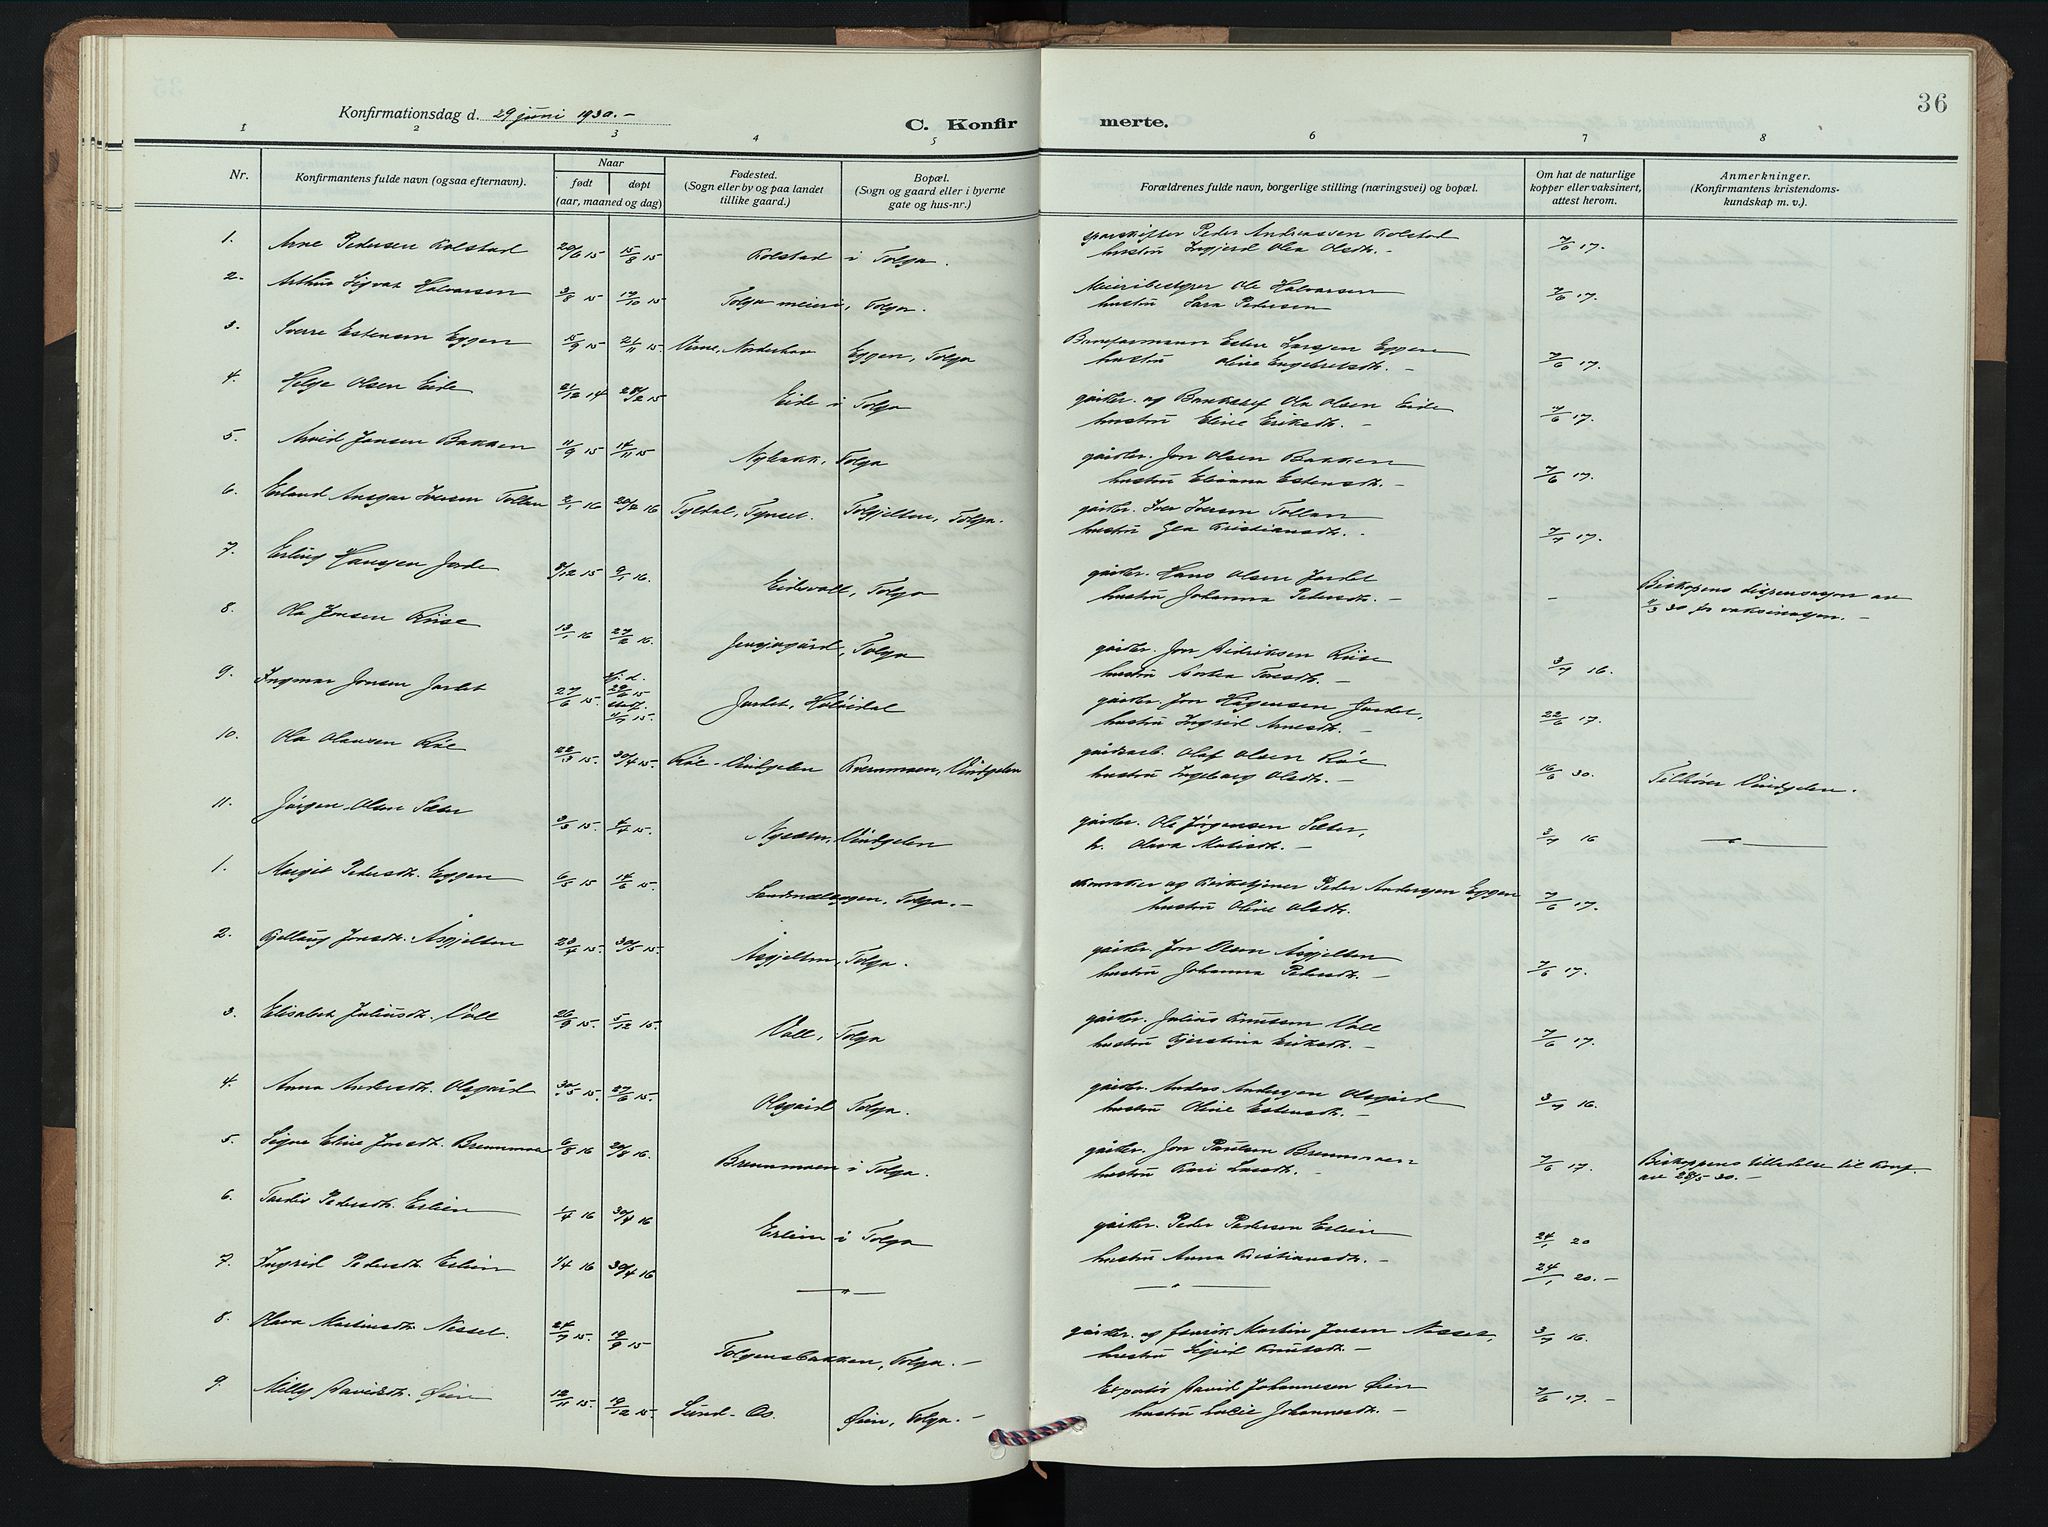 36
Konfirmationsdag d. 29 juni 1930. -
C. Konfirmerte.
1 2 3 4 5 6 7 8
Nr.
Konfirmantens fulde navn (ogsaa efternavn).
Naar
født døpt
(aar, maaned og dag)
Fødested.
(Sogn eller by og paa landet
tillike gaard.)
Bopæl.
(Sogn og gaard eller i byerne
gate og hus-nr.)
Forældrenes fulde navn, borgerlige stilling (næringsvei) og bopæl.
Om hat de naturlige
kopper eller vaksinert,
attest herom.
Anmerkninger.
(Konfirmantens kristendoms-
kundskap m. v.).
1. Arne Pedersen Kolstad 20/6 15 15/8 15 Kolstad i Tolga. Peder Andreassen Kolstad
hustru Ingjerd Ola Olsdtr. - 7/6 17.
2. Arthur Sigvat Halvorsen 3/8 15 17/10 15 Tolga meieri, Tolga. Meieribestyrer Ole Halvorsen
hustru Sara Pedersen 7/6 17.
3. Sverre Estensen Eggen 15/9 15 21/11 15 Norderhov Eggen, Tolga Baneformann Esten Larsen Eggen
hustru Oline Engebretsdtr. - 7/6 17.
4. Helge Olsen Eide 21/12 14 28/2 15 Eide i Tolga gårdbr. og Banksjef Ola Olsen Eide
hustru Eline Eriksdtr. - 7/6 17.
5. Arvid Jonsen Bakken 11/9 15 14/11 15 Nybakk, Tolga gårdbr. Jon Olsen Bakken
hustru Estensdtr. - 7/6 17.
6. Erland Ansgar Iversen Tollan 2/1 16 20/2 16 Tyldal, Tynset. Tolgjelten, Tolga. gårdbr. Iver Iversen Tollan
hustru Gea Kristiansdtr. - 7/7 17.
7. Erling Hanssen Jordet 8/12 15 9/1 16. Eidsvoll, Tolga gårdbr. Hans Olsen Jordet
hustru Johanna Pedersdtr. - - Biskopens dispensasjon av
4/3 30 for vaksinasjon. -
8. Ola Jonsen Riise 13/1 16 27/2 16. Tolga gårdbr. Jon Riise
hustru Dortea 3/7 16.
9. Ingmar Jonsen Jordet 27/6 15 hj. d. 29/6 15 stadf. 4/7 15. Jordet, Holøidal gårdbr. Jon Jordet,
hustru Ingrid Arnesdtr. - 22/6 17.
10. Ola Olavsen Røe 22/3 15. 30/4 15. Røe - Vingelen Kvernmoen, Vingelen gårdsarb. Olaf Olsen Røe
hustru Ingeborg Olsdtr. - 16/6 30. Tilhører Vingelen.
11. Jørgen Olsen Sæter 3/3 15. 4/4 15. Vingelen gårdbr. Ole Jørgensen Sæter,
h. Olava - 3/7 16 - " -
1. Margit Pedersdtr. Eggen 6/5 15 14/6 15. Tolga. - skomaker og Kirketjener Peder Anderssen Eggen
hustru Oline Olsdtr. 7/6 17.
2. Kjellaug Jonsdtr. Åsgjelten 23/4 15. 30/5 15. Åsgjelten, Tolga. gårdbr. Jon Olsen Åsgjelten
hustru Johanna Pedersdtr. - 7/6 17.
3. Elisabet Juliusdtr. Voll 26/9 15. 5/12 15. Voll, Tolga gårdbr. Julius Knutsen Voll
hustru Kjerstina Eriksdtr. - 7/6 17.
4. Anna Andersdtr. Olsgård 30/5 15. 27/6 15. Olsgård Tolga. gårdbr. Anders Anderssen Olsgård
hustru Oline Estensdtr. - 3/7 16.
5. Signe Eline Jonsdtr. Brennmoen 6/8 16 20/8 16. Brennmoen i Tolga. gårdbr. Jon Paulsen Brennmoen
hustru Kari Larsdtr. - 7/6 17. Biskoppens tilladelse til Konf.
av 28/5 30. -
6. Pedersdtr. Erlien 1/4 16 30/4 16 Erlien i Tolga gårdbr. Peder Pedersen Erlien
hustru Anna Kristiansdtr. - 24/1 20
7. Ingrid Pedersdtr. Erlien 1/4 16 30/4 16 - " - - " - 24/1 20. -
8. Olava Martinsdtr. Nesset. 24/7 15. 19/9 15 Tolgensbakken, Tolga. - gårdbr. og Martin Jonsen Nesset,
hustru Sigrid Knutsdtr. - 3/7 16.
9. Milly Davidsdtr. Øien 12/11 15. 19/12 15. Sund - Os. Øien, Tolga. - Expeditør David Johannesen Øien
hustru Lucie Johannesdtr. - 7/6 17. -